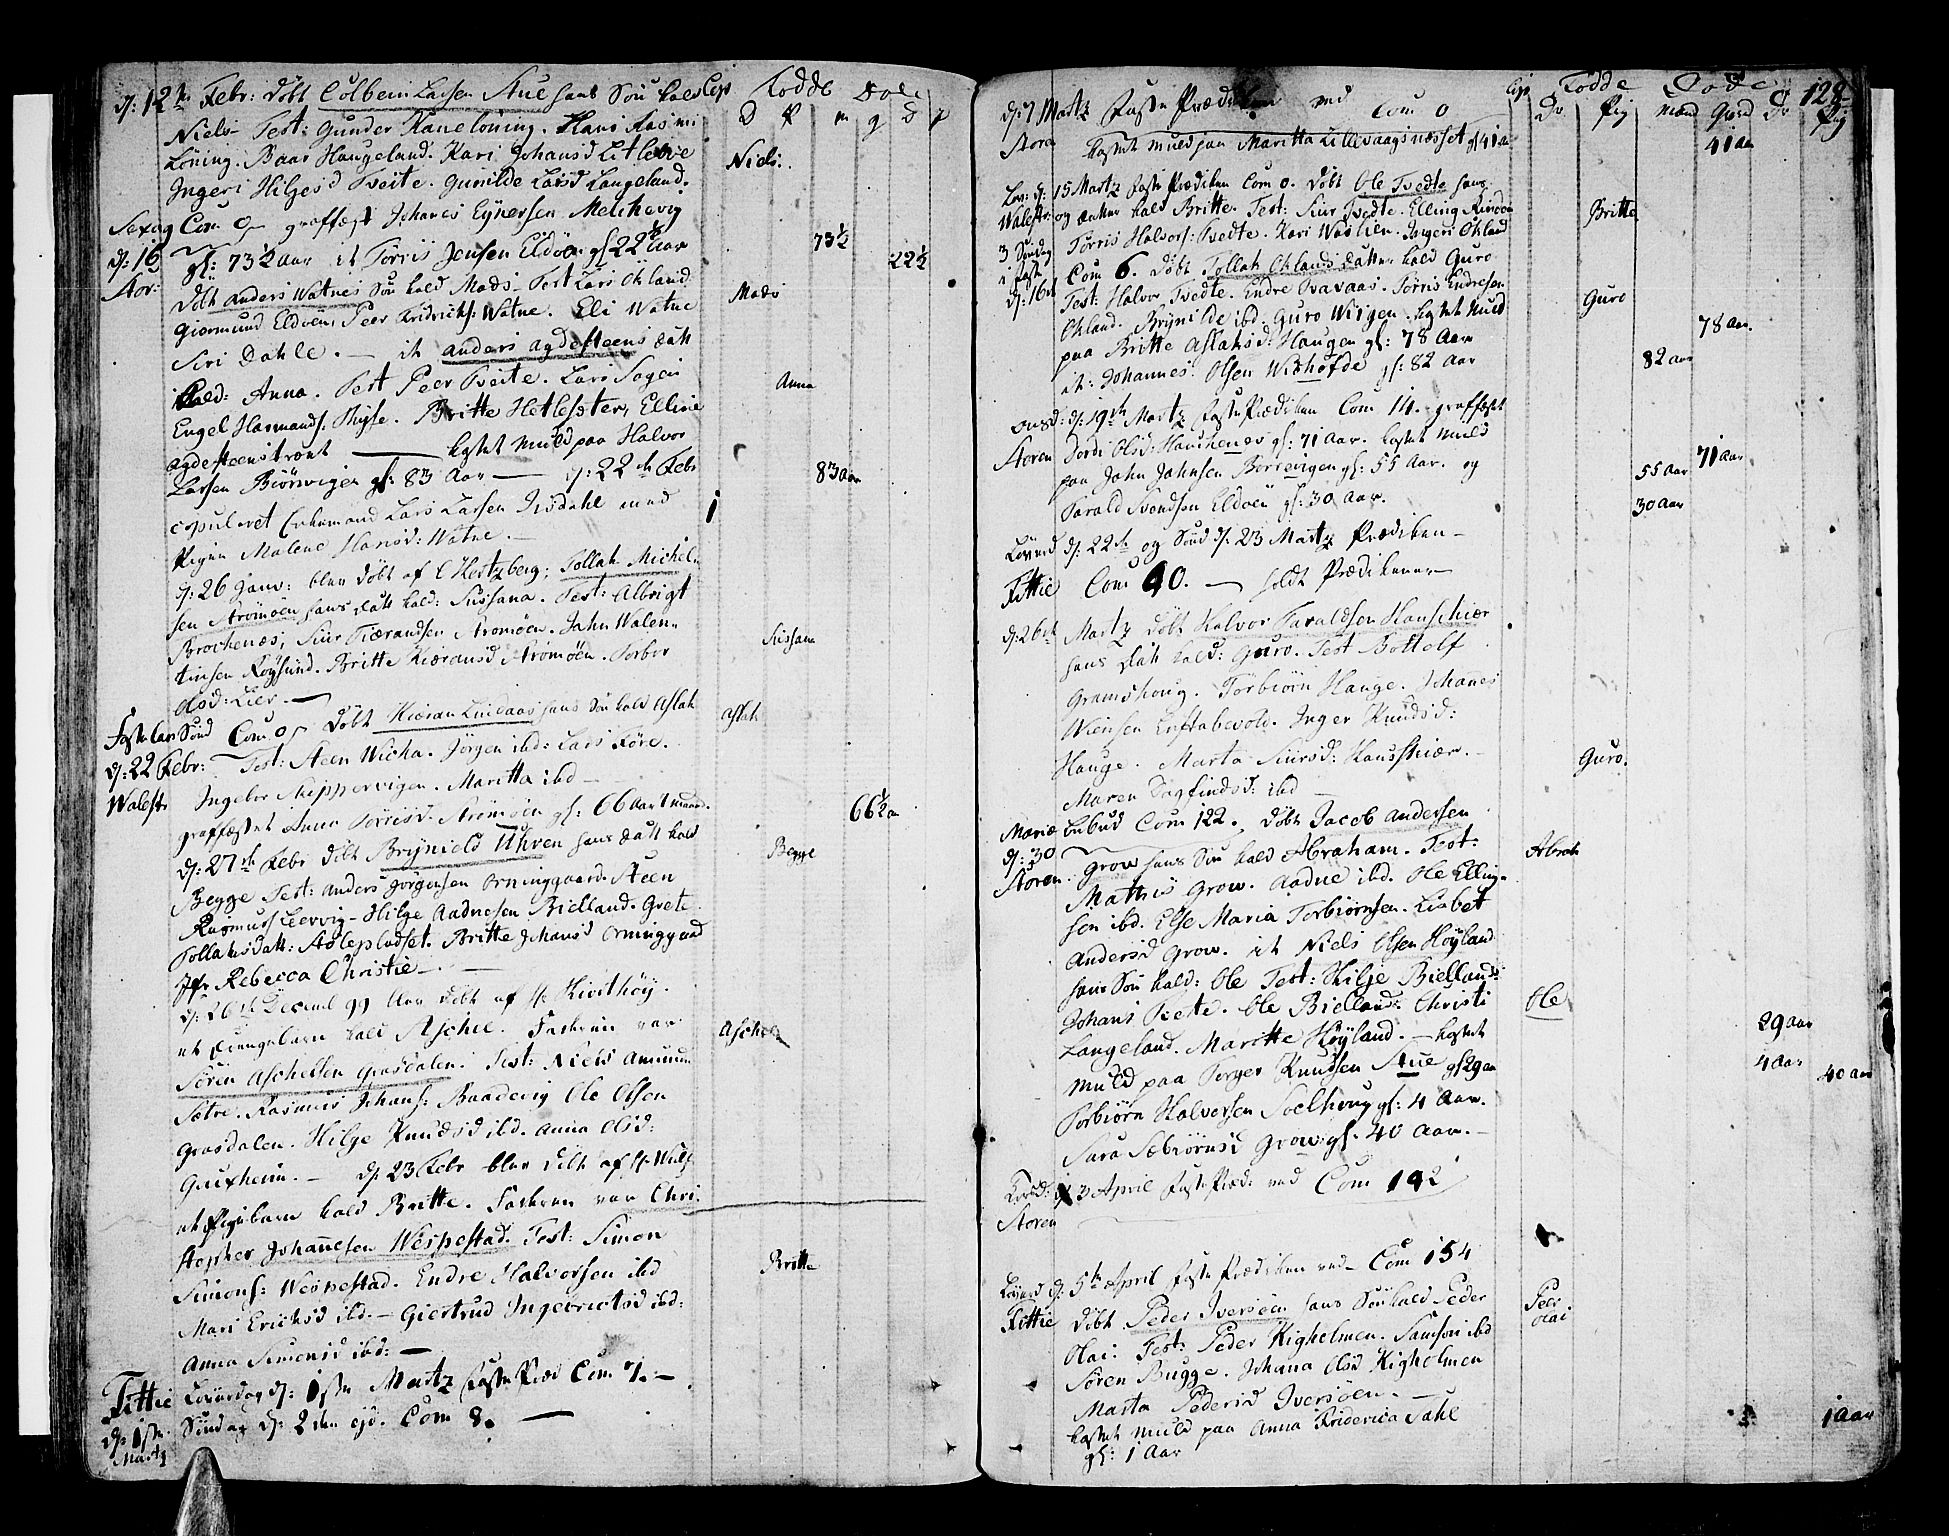 d: 12te Febr: döbt Colbein Larsen Aue hans Sön kaldes
Niels- Test: Gunder Kaneloning. Hans Rasm:
Löning. Baar Haugeland. Kari Johansd Litleøie
Ingeri Hilgesd Tveite. Gunilde Larsd Langeland.
Sexag Com 0 graffæst Johanes Eynersen Melchevig
d: 16 gl: 73½ Aar it Torris Jensen Eldøen gl 22½ Aar
Stor: Döbt Anders Watnes Sön kald Mads. Test Lars Okland
Giermund Eldøen, Peer Fridrichs: Watne. Eli Watne
Siri Dahle. — it Anders Agdesteens datt
kald: Anna. Test Peer Tveite. Lars Sagen
Engel Harmands. Thyse. Britte Hetlesæter, Elline
Agdesteenstrønt — kastet Muld paa Halvor
Larsen Biørwigen gl: 83 Aar — d: 22de Febr
copuleret Enkemand Lars Larsen Irsdahl med
Pigen Malene Hansd: Watne. —
d: 26 Janv: blev döbt af C Hertzberg; Tollak Michel-
sen Strömöen hans datt kald: Sussana. Test: Albrigt
Brochenæs; Siur Tiærandsen Strømøen. Jahn Walen-
tinsen Røysund. Britte Kiæransd Strømøen. Torbor
Olsd: Lier —
Fastelav Sönd Com 0 Döbt Kiæran Lindaas hans Sön kald Aslak
d: 22 Febr: Test: Steen Wicha. Jörgen ibd: Lars Føre.
Walestr Ingebor Skippervigen. Maritta ibd —
graffæstet Anna Torrisd. Strømøen gl: 66 Aar 1 maaned.
d: 27de Febr döbt Brynield Uhren hans datt kald
Begge Test: Anders Jörgensen Orninggaard. Steen
Rasmus Leervig- Hilge Aadnesen Bielland. Grete
Tollaksdatt: Aslepladset. Britte Johansd Orninggaard
Jfr Rebecca Christie —
d: 26de Decembr 99 blev döbt af Hr Hvithöy.
et Drengebarn kald Aschie. Faderen var
Sören Aschelsen Grasdalen. Test: Niels Amunds
Sætre. Rasmus Johans: Baadevig Ole Olsen
Grasdalen. Hilge Knudsd ibd. Anna Olsd:
Guixheim. — d. 23 Febr blev döbt af Hr Wulf
et Pigebarn kald Britte. Faderen var Chri-
stopher Johannesen Wespestad. Test: Simon
Simons: Wespestad. Endre Halvorsen ibd
Mari Erichsd ibd. — Giertrud Ingebrictsd ibd:
Anna Simonsd ibd: —
Fittie Löverdag d: 1ste Martz FastePræd Com 7. —
d: 1ste Söndag d: 2den ejd. Com 8. —
Martz
Cop Födde Döde
D P m q D p
Niels.
73½
22½
Mads
Anna
83 Aar
1
Sussana
Aslak
66½ a
Begge
Aschel
Britte
128
d: 7 Martz FastePrædiken ved Com 0
Storø kastet Muld paa Maritta Lillevaagsnæsset gl 41 a
Lov: d. 15 Martz FastePrædiken Com 0. Döbt Ole Tvedte hans
Walestr: og Enkes kald Britte. Test: Siur Tvedte. Elling
3 Söndag Torris Halvors: Tvedte. Kari Wastlien. Ingeri Okland
i faste Com 6. Döbt Tollak Oklands datter kald Guro
d: 16de Test: Halvor Tvedte. Endre Svavaas. Torris Endresen
Okland. Brynilde ibd. Guro Wiigen. kastet Muld
paa Britte Aslaksd: Haugen gl: 78 Aar
it: Johannes Olsen Wikhofde gl: 82 Aar
onsd: d: 19de Martz FastePrædiken Com 14. graffæstet
Storen Dordi Olsd: Hauchenæs gl: 71 Aar. kastet Muld
paa John Johnsen Borrevigen gl: 55 Aar. og
Farald Svendsen Eldøen gl: 30 Aar.
Löverd d: 22de og Sönd d: 23 Martz Prædiken —
Fittie Com 40. — holdt Prædikener —
d: 26de Martz döbt Halvor Faraldsen Hauschiær
hans datt kald: Guro. Test Bottolf
Gramshoug. Torbiörn Hauge. Johanes
Wiensen Enstabevold. Inger Knudsd:
Hauge. Marta Siursd: Hauskiær. —
Maren Dagfindsd: ibd —
Mariæ Bebud Com 122. Döbt Jacob Andersen
d: 30 Grow hans Sön kald Abraham. Test:
Storen. Mathis Grow. Aadne ibd. Ole Elling-
sen ibd. Else Maria Torbiörnsen. Lisbet
Andersd Grow. it Niels Olsen Höyland
hans Sön kald: Ole Test: Hilge Bielland
Johans Tvete. Ole Bielland: Christi
Langeland. Maritte Höyland. — kastet
Muld paa Torger Knudsen Aue gl 29 aa
Torbiörn Halvorsen Soelhoug gl: 4 Aar.
Sara Sæbiörnsd Grow gl. 40 Aar. —
Torsd: d 3 April FastePræd: ved Com 142
Storen
Löverd d: 5te April FastePrædiken ved Com 154
Fittie döbt Peder Iversøen hans Sön kald Peder
Olai: Test: Peder Kigholmen. Samson ibd
Sören Bugge. Johana Olsd Kigholmen
Marta Pedersd Iversöen. —
kastet Muld paa Anna Friderica Dahl
gl: 1 Aar
Cop Födde Döde
Dr Pig Mænd Qvind Dr Pig
41 aa
Britte
Guro
78 Aar.
82 aar
71 aar
55 aar
30 aar
Guro.
Abrah
Ole
29 aar
4 aar
40 aar
Peer
olai
1 aar